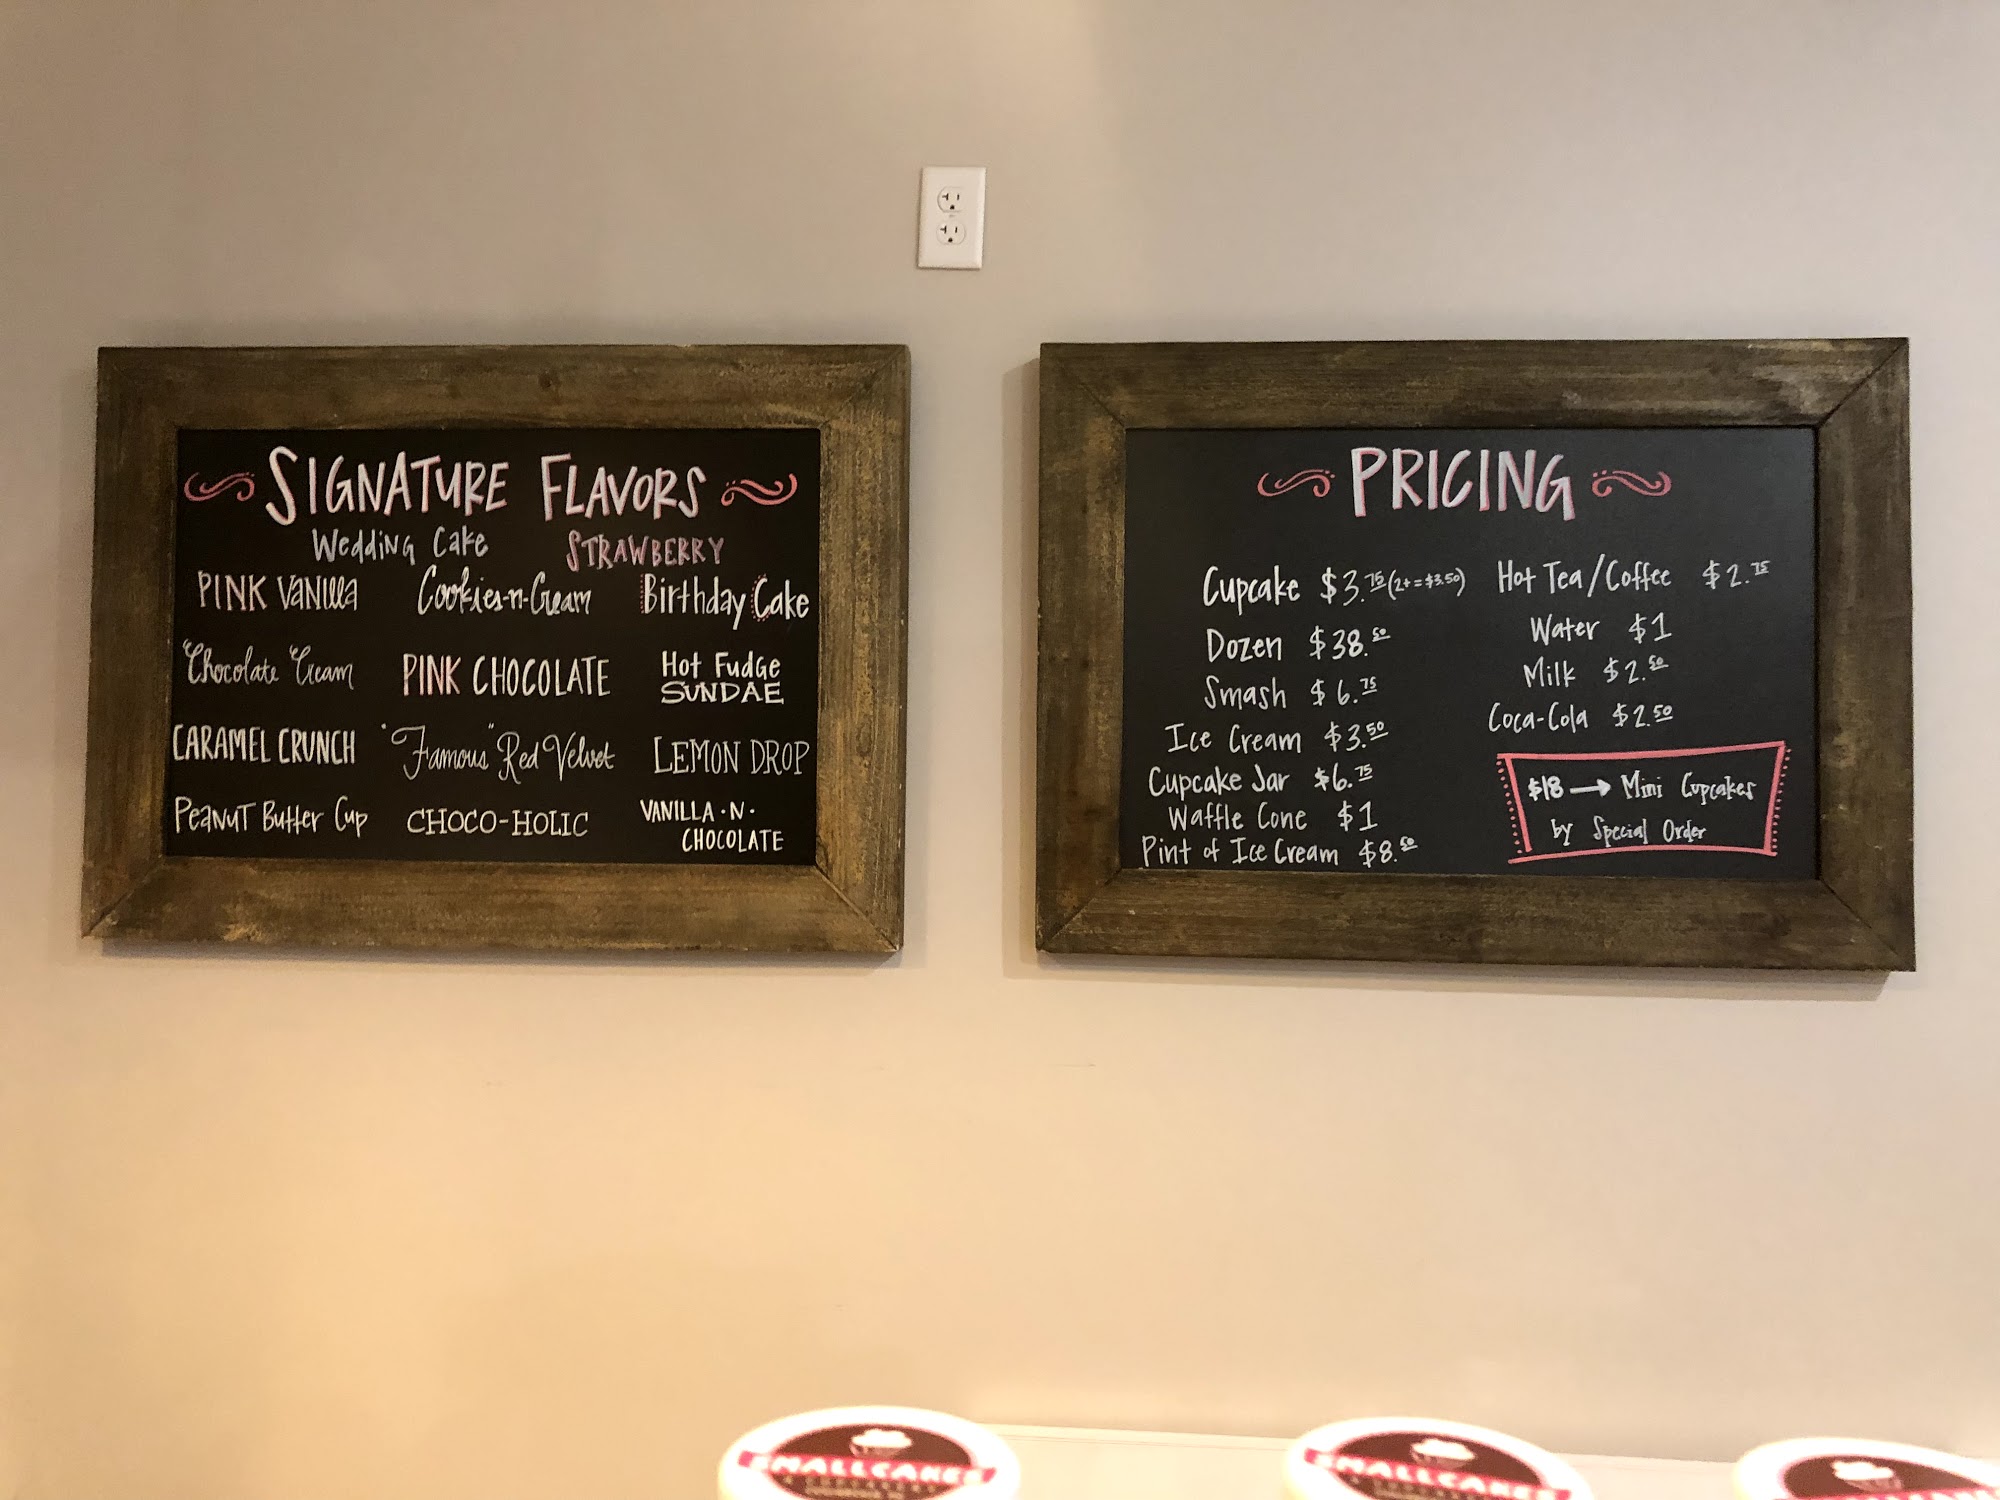 SIGNATURE FLAVORS
Wedding Cake STRAWBERRY
PINK Vanilla Cookies-n-Cream Birthday Cake
Chocolate Cream PINK CHOCOLATE Hot Fudge SUNDAE
CARAMEL CRUNCH "Famous" Red Velvet LEMON DROP
Peanut Butter Cup CHOCO-HOLIC VANILLA·N·
CHOCOLATE
PRICING
Cupcake $3.75 (2+ = $3.50)
Dozen $38.50
Smash $6.75
Ice Cream $3.50
Cupcake Jar $6.75
Waffle Cone $1
Pint of Ice Cream $8.50
Hot Tea/Coffee $2.75
Water $1
Milk $2.50
Coca-Cola $2.50
$18 → Mini Cupcakes
by Special Order
SMALLCAKES
SMALLCAKES